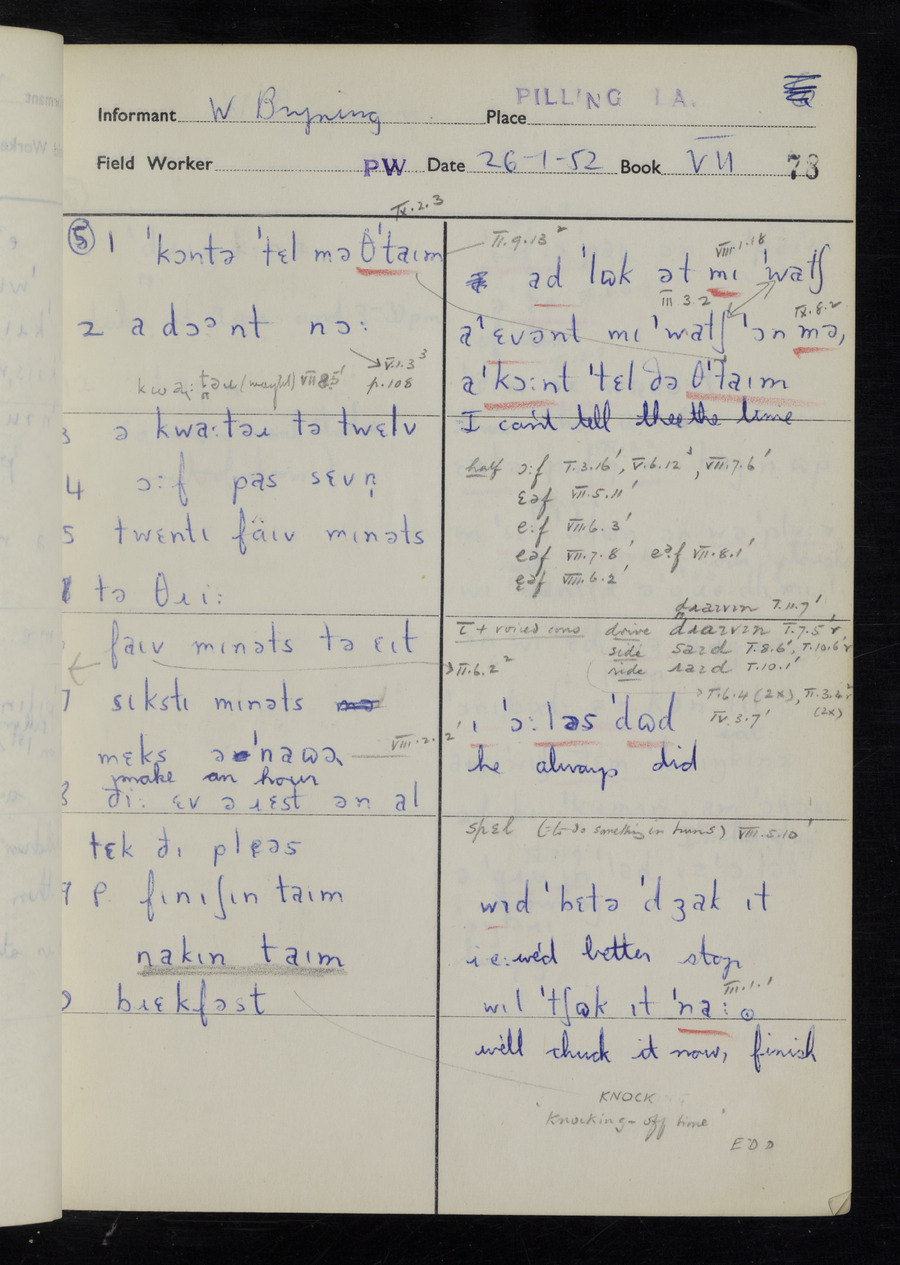 PILLING LA.
Informant W Bryning Place
Field Worker PW Date 26-1-52 Book VII 78
IX.2.3
⑤ 1 'kɔntə 'tɛl mə θ'taɪm
2 a dɔənt nɔ:
V.1.3³
p.108
3 ə kwa:təɹ tə twɛlv
4 ɔ:f pas sɛvn̩
5 twɛntɪ fäɪv mɪnəts
tə θɹi:
faɪv mɪnəts tə ɛɪt
7 sɪkstɪ mɪnəts
mɛks ə'nawə
make an hour
ði: ɛv ə ɹɛst ən al
tɛk ðɪ plɛəs
9 P. fɪnɪʃɪn taɪm
nakɪn taɪm
bɹɛkfəst
II.9.13²
VIII.1.18
ad 'lɷk ət mɪ 'watʃ
III 3.2
IX.8.2
a'ɛvənt mɪ 'watʃ 'ɔn mə,
a'kɔ:nt 'tɛl ðə θ'taɪm
I can't tell thee the time
half ɔ:f I.3.16', V.6.12³, VII.7.6'
ɛəf VII.5.11'
e:f VII.6.3'
eəf VII.7.8', eəf VII.8.1'
ɛəf VIII.6.2'
dɹaɪvɪn I.11.7'
ī + voiced cons drive dɹaɪvɪn I.7.5'r,
side saɪd I.8.6', I.10.6'r
ride ɹaɪd I.10.1'
II.6.2²
I.6.4 (2x), II.3.4²
IV.3.7' (2x)
ɪ 'ɔ:ləs 'dɷd
he always did
spɛl (= to do something in turns) VIII.5.10'
wɪd 'bɛtə 'dʒak ɪt
i.e: we'd better stop
III.1.1'
wɪl 'tʃɷk ɪt 'na:
we'll chuck it now, finish
KNOCK
'Knocking-off time'
EDD